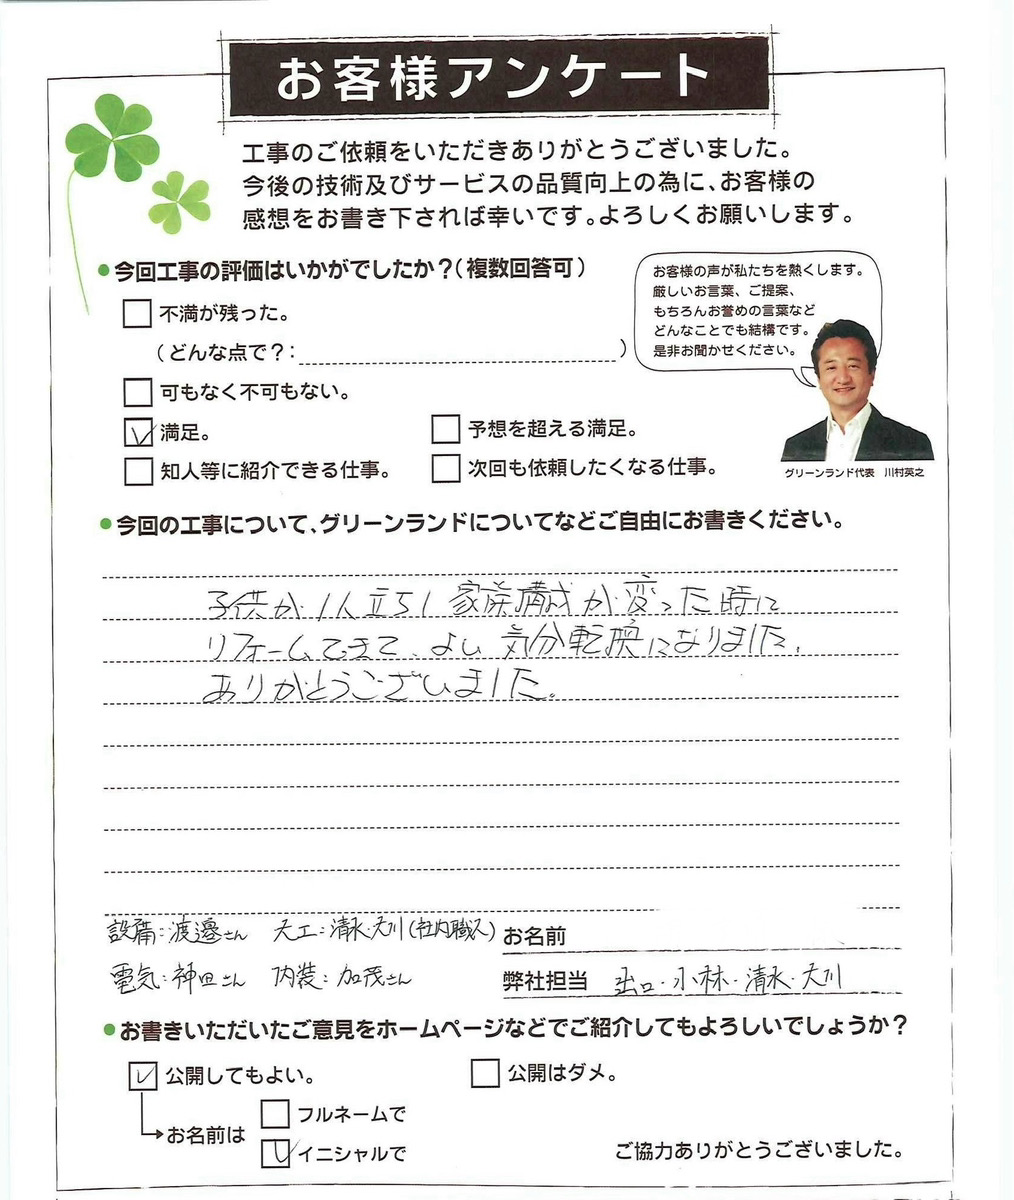 お客様アンケート
工事のご依頼をいただきありがとうございました。
今後の技術及びサービスの品質向上の為に、お客様の
感想をお書き下されば幸いです。よろしくお願いします。
●今回工事の評価はいかがでしたか？（複数回答可）
不満が残った。
（どんな点で？：　　　　）
可もなく不可もない。
満足。
予想を超える満足。
知人等に紹介できる仕事。
次回も依頼したくなる仕事。
お客様の声が私たちを熱くします。
厳しいお言葉、ご提案、
もちろんお誉めの言葉など
どんなことでも結構です。
是非お聞かせください。
グリーンランド代表　川村英之
●今回の工事について、グリーンランドについてなどご自由にお書きください。
子供が1人立ちし家族構成が変った時に
リフォームできて、よい気分転換になりました。
ありがとうございました。
設備：渡邉さん　大工：清水・大川（社内職人）
電気：神田さん　内装：加茂さん
お名前
弊社担当　出口・小林・清水・大川
●お書きいただいたご意見をホームページなどでご紹介してもよろしいでしょうか？
公開してもよい。
公開はダメ。
お名前は
フルネームで
イニシャルで
ご協力ありがとうございました。